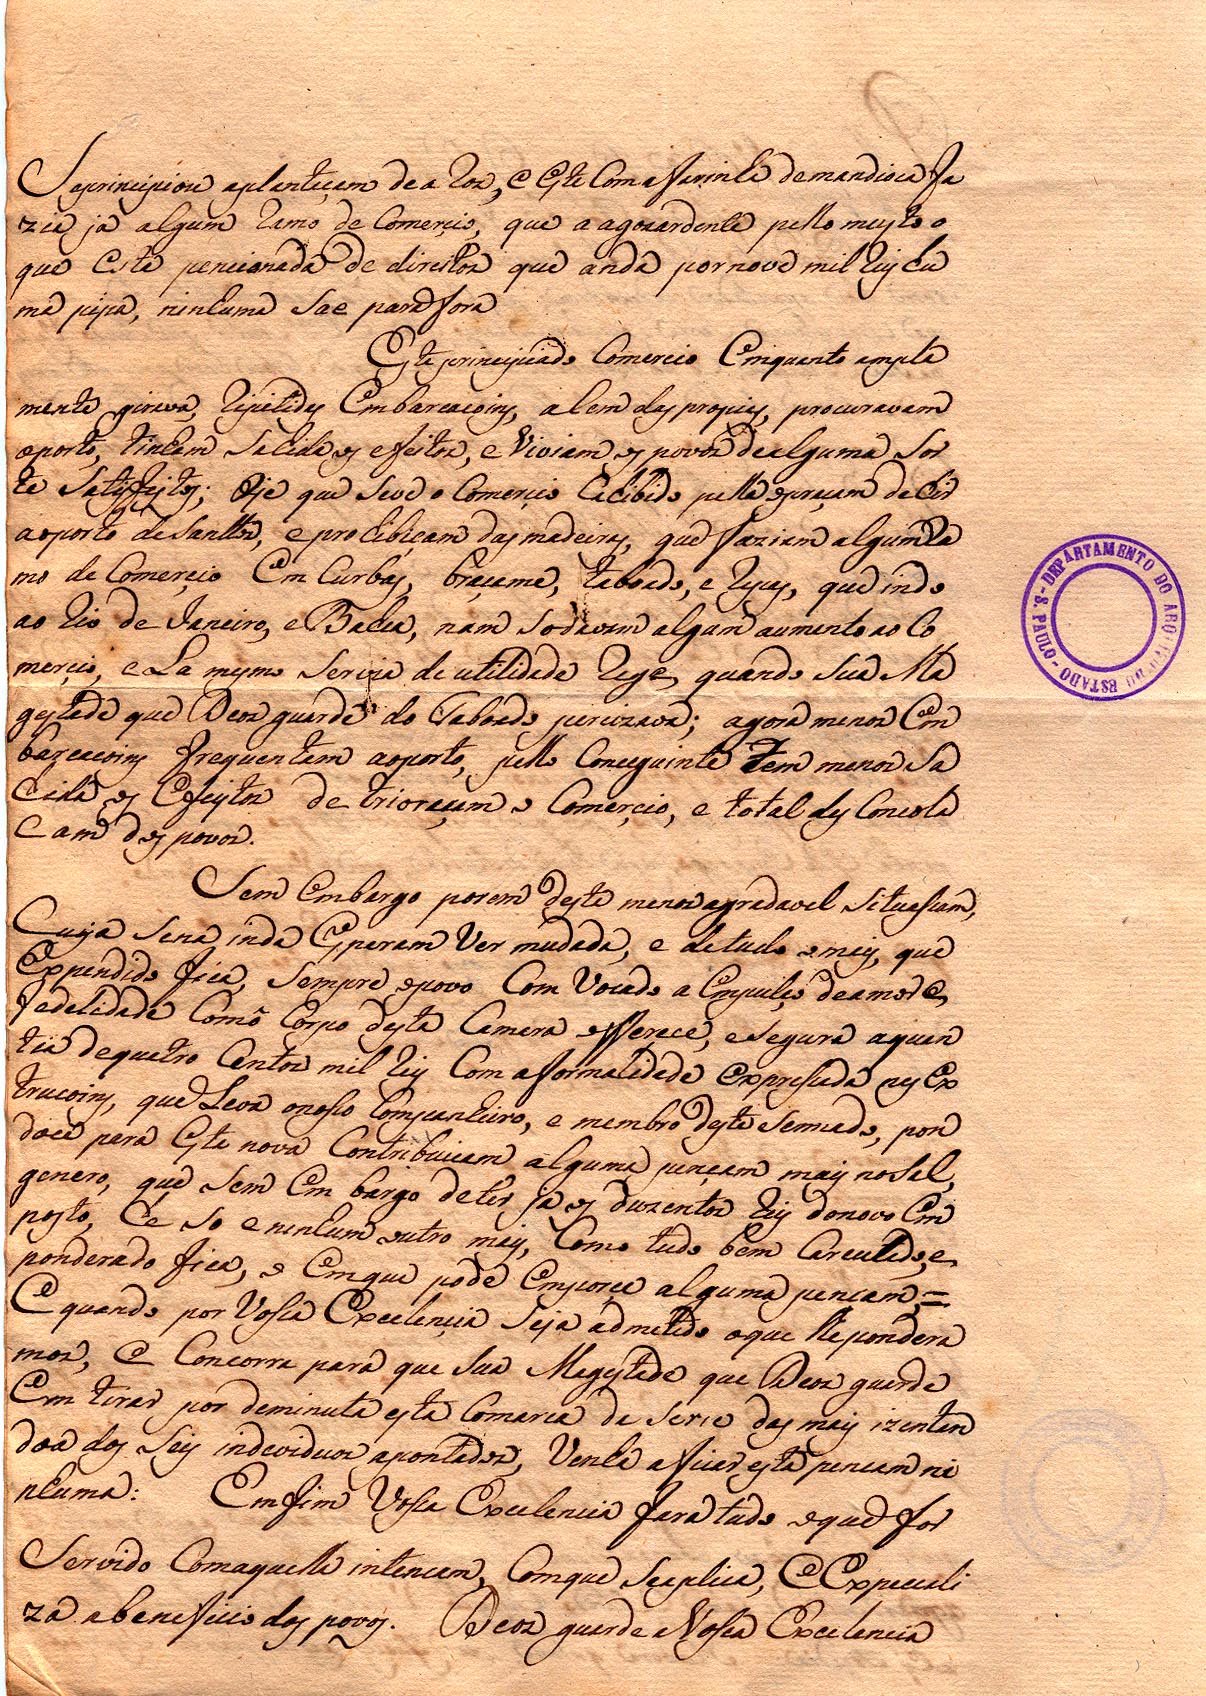 Seprincipiou aplantaçam de a Ros, e Este Com a farinha demandioca fa
zia ja algum Ramo de Comercio, que a agoardente pello mesmo
que está pencionada de direitos que anda por nove mil Reis cu
ma pipa, ninhuma sae para fora
Este principiado Comercio Emquanto ampla
mente girava, Repetidas Embarcacoins, alem das propias, procuravam
oporto, tinham Sahida os efeitos, e Viviam os povos dealguma Sor
te Satisfeitos; Oje que seve o Comercio Cohibido pella opreçam de hir
aoporto de Santos, e prohibiçam das madeiras, que faziam algum Ra
mo de Comercio Em Curbas, braçame, taboado, e Rysas, que indo
ao Rio de Janeiro, e Bahia, nam so davam algum aumento ao Co
mercio, e La mesmo Servia de utilidade Regea quando Sua Ma
gestade que Deos guarde do Taboado percizava; agora menos Em
barcacoins frequentam aoporto, pello Conseguinte tem menos Sa
hida os Efeytos deterioraçam o Comercio, e total desconsola
cam dos povos.
Sem Embargo porem desta menos agradavel situassam,
Cuja Sena inda Esperam Ver mudada, e detudo o mais, que
Expendido fica, sempre opovo Comvocado a Empulços deamor e
fedelidade Como Corpo desta Camera offerece, e segura aquan
tia dequatro Centos mil Reis Com a formalidade expressada nas Ex
trucoins, que Leva onosso Companheiro, e membro deste Senado, pon
doce para Esta nova Contribuicam alguma pençam mais no Sal,
genero, que sem Embargo deter ja os duzentos Reis donovo Em
posto, he so e ninhum outro mais, Como tudo bem Carculado, e
ponderado fica, o Emque pode Emporce alguma pencam, =
E quando por Vossa Excelencia Seja admetido oque Reponder a
mos, e Concorra para que Sua Magestade que Deos guarde
Em tirar por deminuta esta Comarca da serie das mais izentan
doa dos Seis individuos apontados, Venha aficar esta pencam ni
nhuma: Emfim Vossa Excelencia fara tudo oque for
Servido Comaquella intencam, Comque Seaplica, E Expeceali
za abenefficio dos povos. Deos guarde a Vossa Excelencia
DEPARTAMENTO DO ARQUIVO DO ESTADO - S. PAULO -